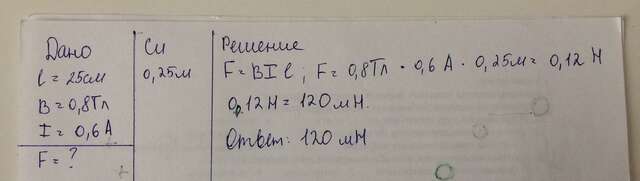 Дано
l = 25см
B = 0,8Тл
I = 0,6 А
F = ?
Си
0,25м
Решение
F = B I l ; F = 0,8Тл · 0,6 А · 0,25м = 0,12 Н
0,12Н = 120мН.
Ответ: 120 мН